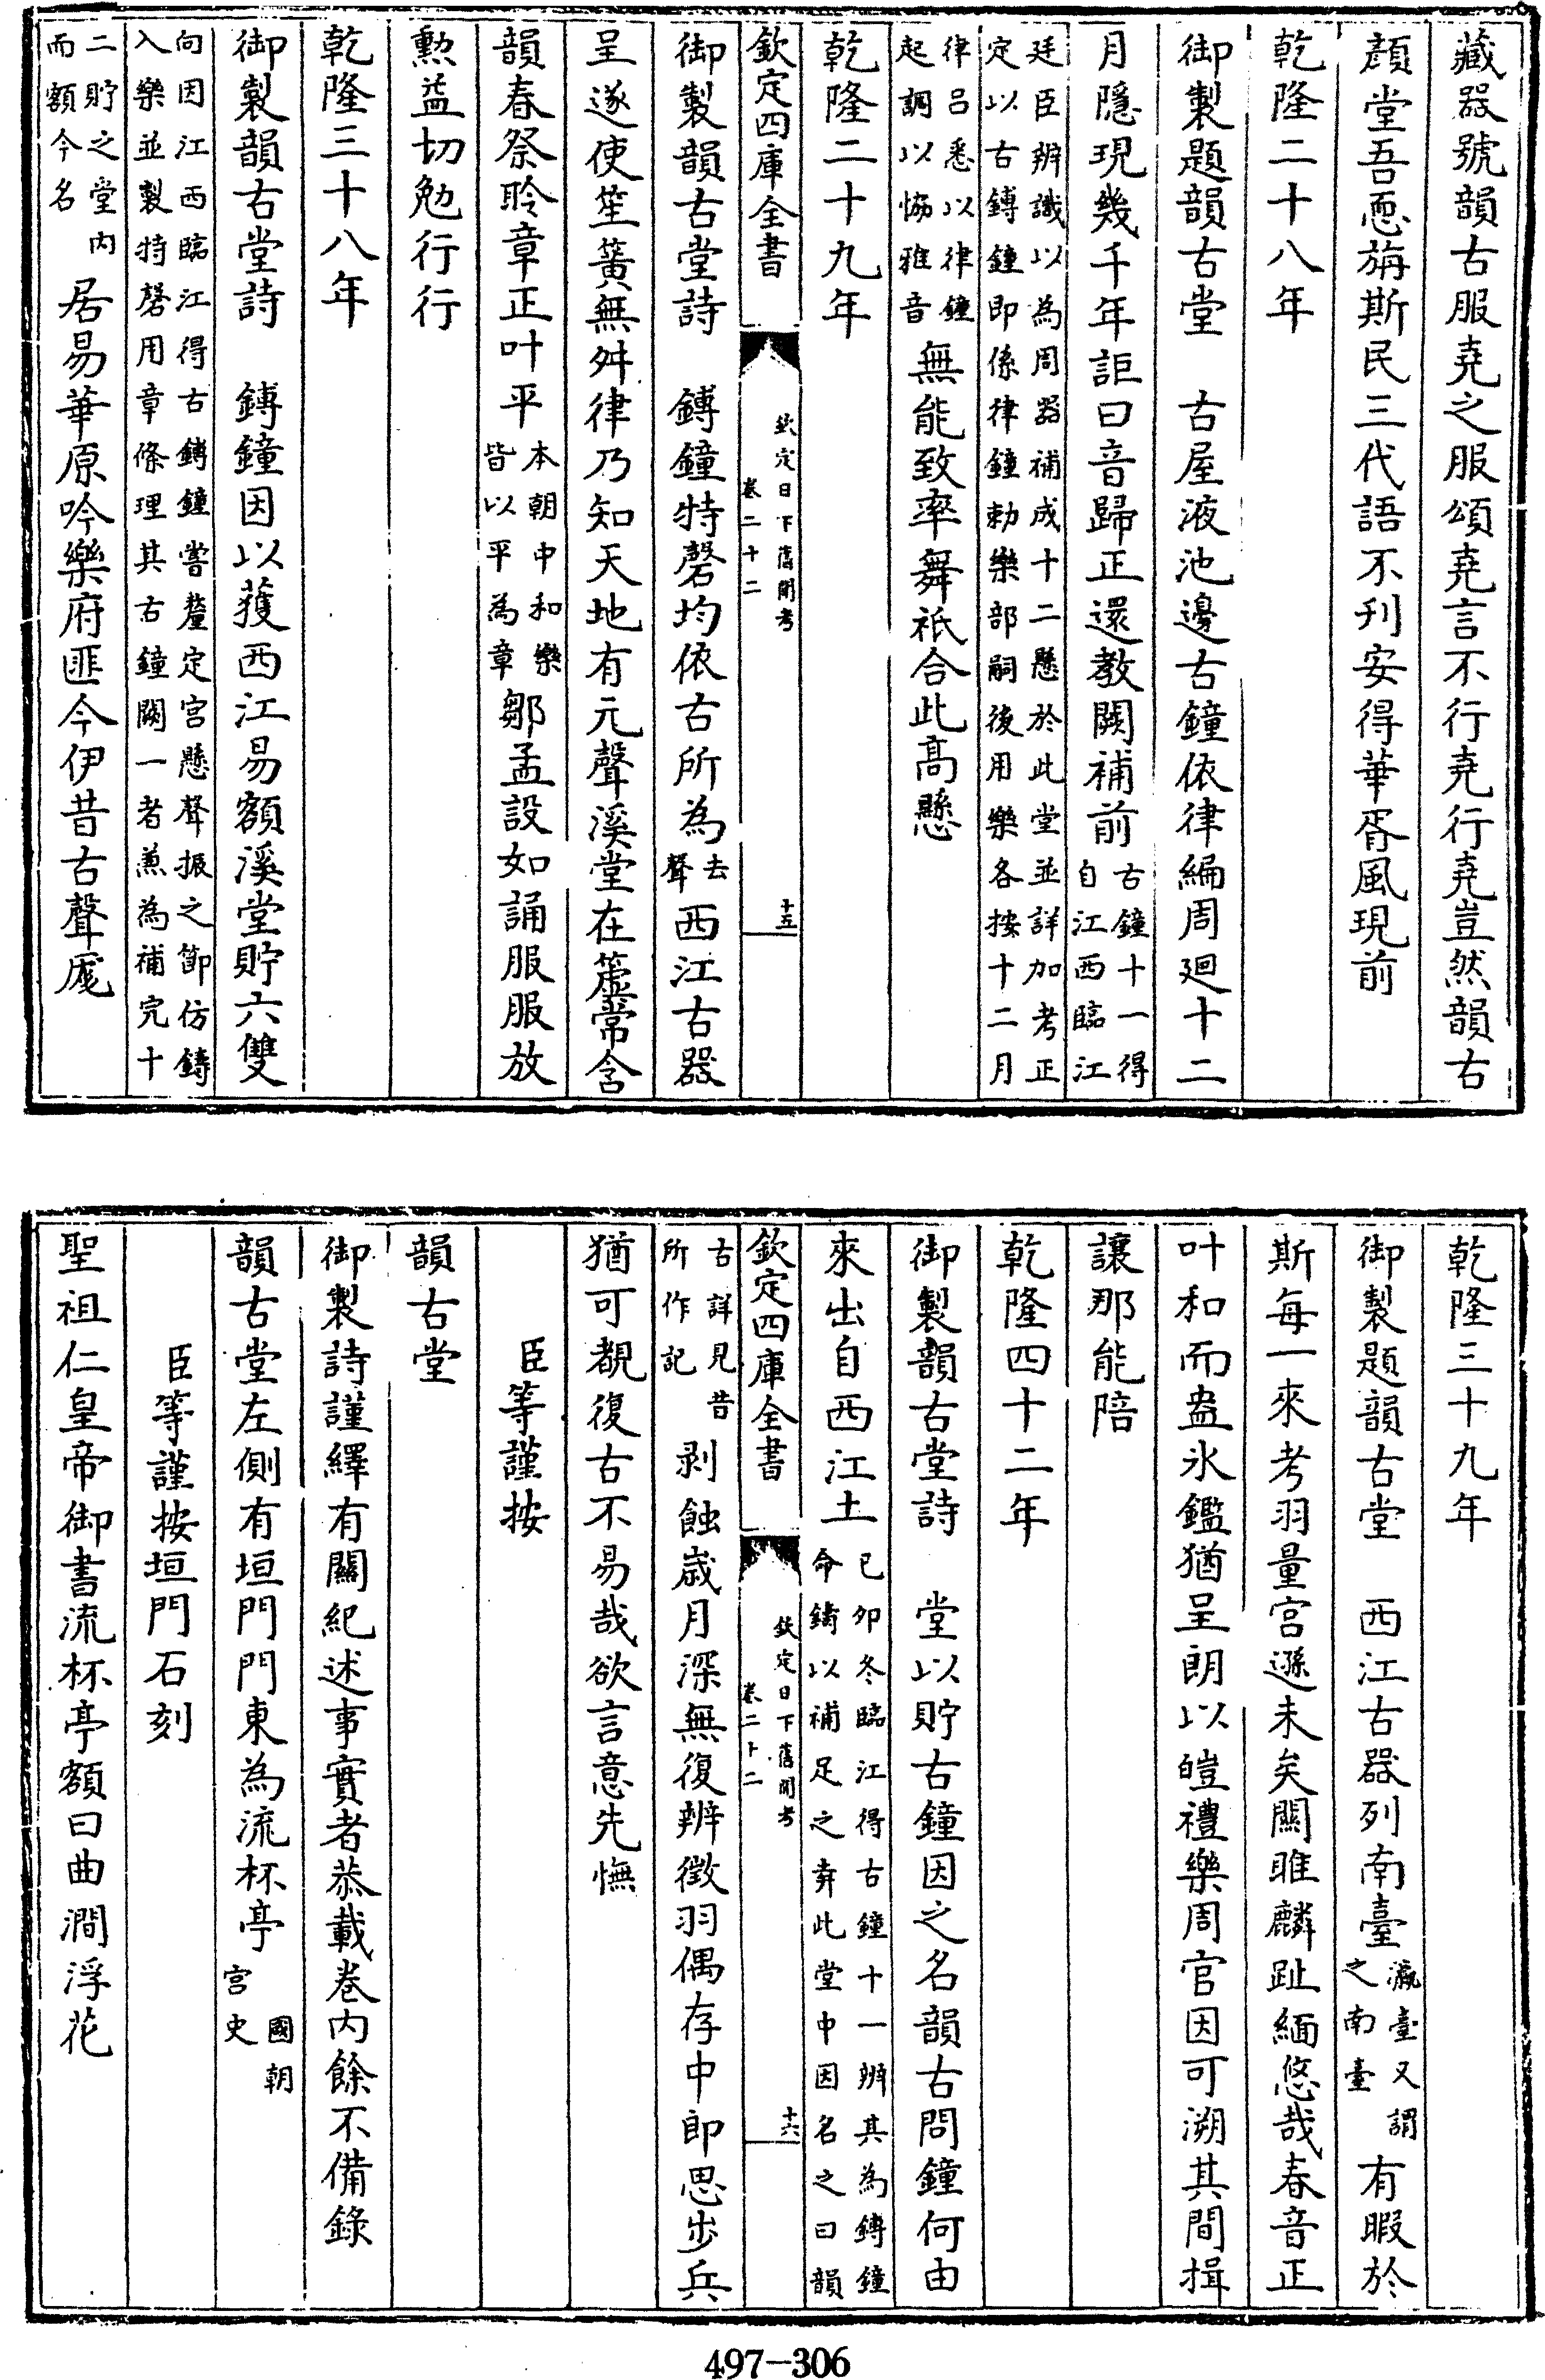 藏器號韻古服堯之服頌堯言不行堯行堯豈然韻古
顔堂吾恧旃斯民三代語不刋安得華胥風現前
乾隆二十八年
御製題韻古堂　古屋液池邊古鐘依律編周廻十二
月隱現幾千年詎曰音歸正還教闕補前古鐘十一得
自江西臨江
廷臣辨識以為周器補成十二懸於此堂並詳加考正
定以古鎛鐘即係律鐘勅樂部嗣後用樂各按十二月
律吕悉以律鐘
起調以恊雅音無能致率舞祇合此高懸
乾隆二十九年
欽定四庫全書
欽定日下舊聞考
卷二十二
十五
御製韻古堂詩　鎛鐘特磬均依古所為去
聲西江古器
呈遂使笙簧無舛律乃知天地有元聲溪堂在簴常含
韻春祭聆章正叶平本朝中和樂
皆以平為章鄒孟設如誦服服放
勲益切勉行行
乾隆三十八年
御製韻古堂詩　鎛鐘因以獲西江易額溪堂貯六雙
向因江西臨江得古鎛鐘嘗釐定宫懸聲振之節仿鑄
入樂並製特磬用章條理其古鐘闕一者兼為補完十
二貯之堂内
而額今名居易華原吟樂府匪今伊昔古聲厖
乾隆三十九年
御製題韻古堂　西江古器列南臺瀛臺又謂
之南臺有暇於
斯每一來考羽量宫遜未矣關雎麟趾緬悠哉春音正
叶和而盎氷鑑猶呈朗以皚禮樂周官因可溯其間揖
讓那能陪
乾隆四十二年
御製韻古堂詩　堂以貯古鐘因之名韻古問鐘何由
來出自西江土己卯冬臨江得古鐘十一辨其為鎛鐘
命鑄以補足之弆此堂中因名之曰韻
欽定四庫全書
欽定日下舊聞考
卷二十二
十六
古詳見昔
所作記剥蝕歳月深無復辨徴羽偶存中郎思步兵
猶可覩復古不易哉欲言意先憮
臣等謹按
韻古堂
御製詩謹繹有關紀述事實者恭載卷内餘不備錄
韻古堂左側有垣門門東為流杯亭國朝
宫史
臣等謹按垣門石刻
聖祖仁皇帝御書流杯亭額曰曲澗浮花
497-306